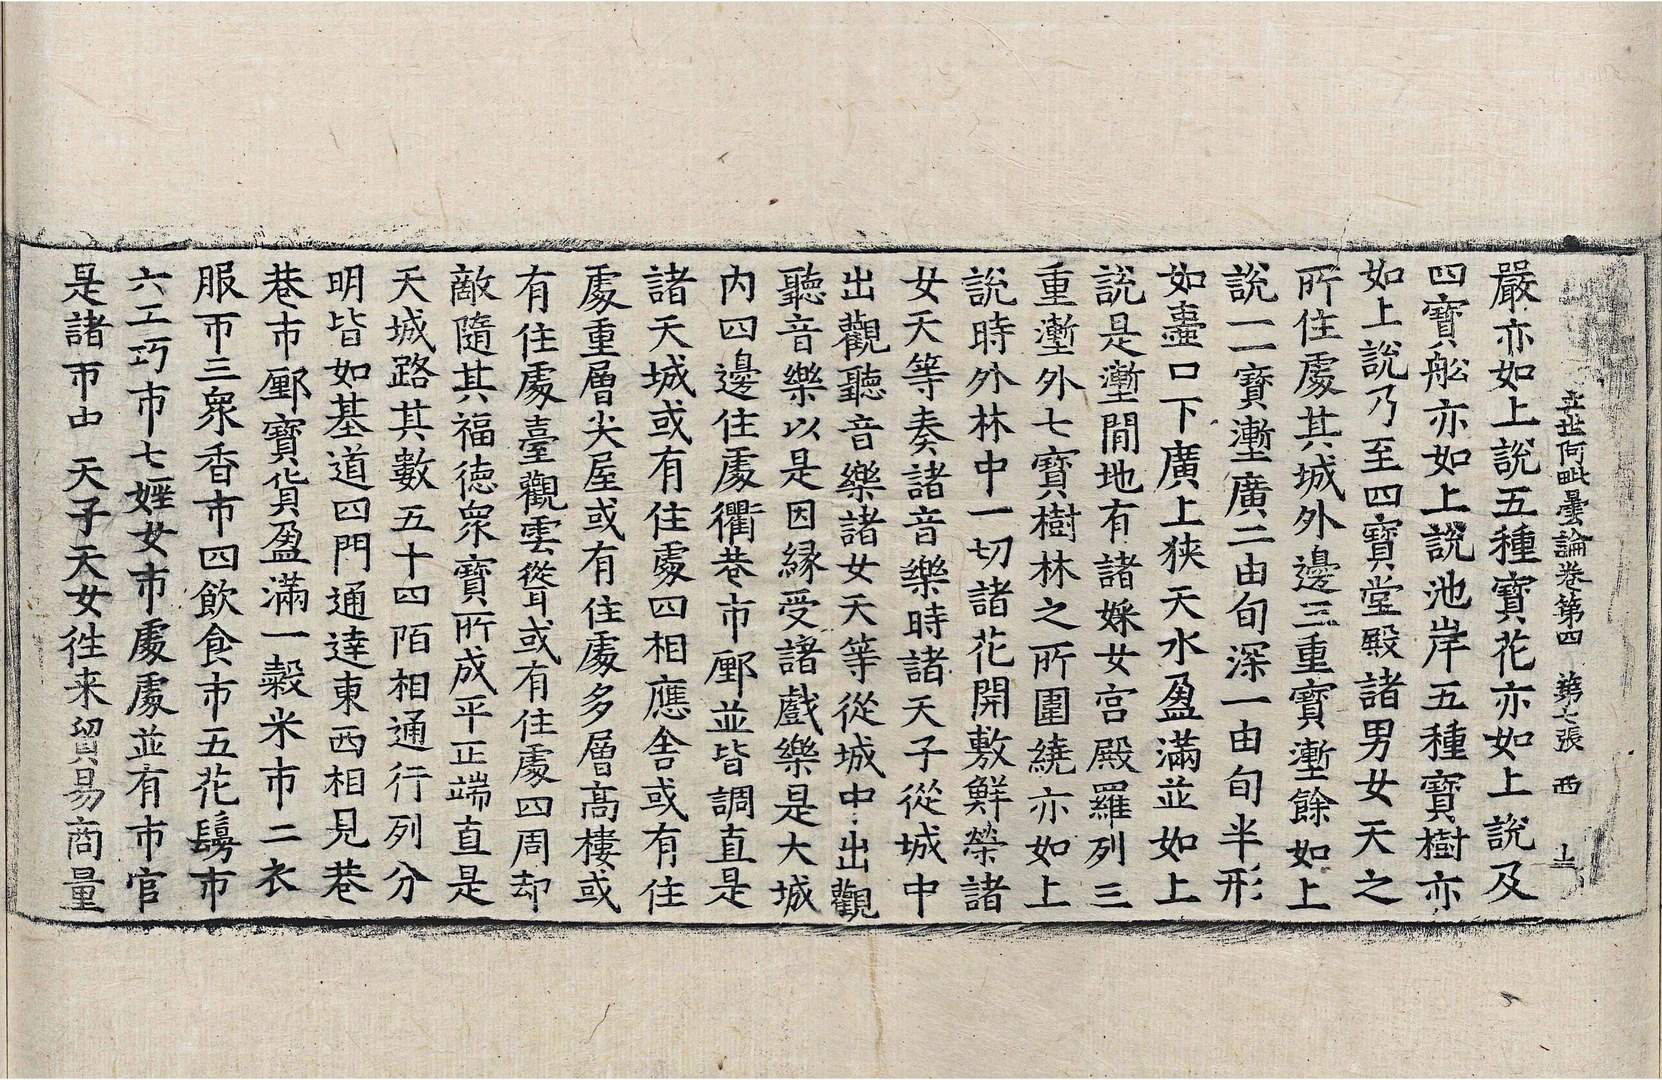 立世阿毗曇論卷第四 第七張 西
嚴亦如上說五種寶花亦如上說及
四寶舩亦如上說池岸五種寶樹亦
如上說乃至四寶堂殿諸男女天之
所住處其城外邊三重寶壍餘如上
說一一寶壍廣二由旬深一由旬半形
如壼口下廣上狹天水盈滿並如上
說是壍間地有諸婇女宮殿羅列三
重壍外七寶樹林之所圍繞亦如上
說時外林中一切諸花開敷鮮榮諸
女天等奏諸音樂時諸天子從城中
出觀聽音樂諸女天等從城中出觀
聽音樂以是因緣受諸戲樂是大城
內四邊住處衢巷市鄽並皆調直是
諸天城或有住處四相應舍或有住
處重層尖屋或有住處多層高樓或
有住處臺觀雲聳或有住處四周却
敵隨其福德衆寶所成平正端直是
天城路其數五十四陌相通行列分
明皆如基道四門通達東西相見巷
巷市鄽寶貨盈滿一穀米市二衣
服市三衆香市四飲食市五花鬘市
六工巧市七婬女市處處並有市官
是諸市中天子天女徃来貿易商量